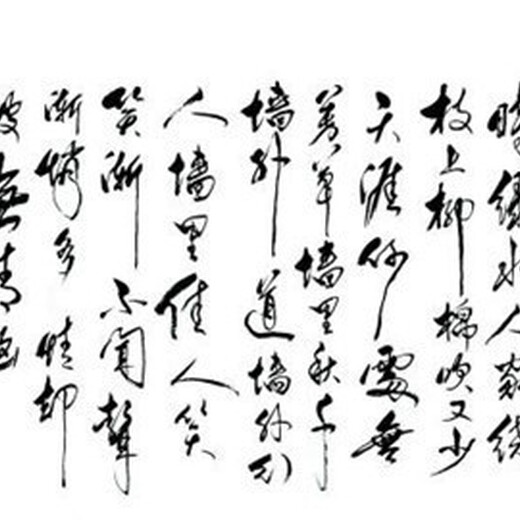 時绿水人家绕
枝上柳棉吹又少
天涯何處無
芳草墙里秋千
墙外道墙外行
人墙里佳人笑
笑渐不闻聲
渐悄多情却
被無情恼